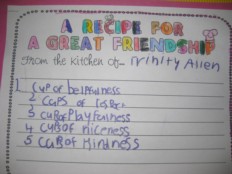 A RECIPE FOR
A GREAT FRIENDSHIP
From the kitchen of Trinity Allen
1 cup of helpfulness
2 cups of
3 cup of Playfulness
4 cup of niceness
5 cup of Kindness